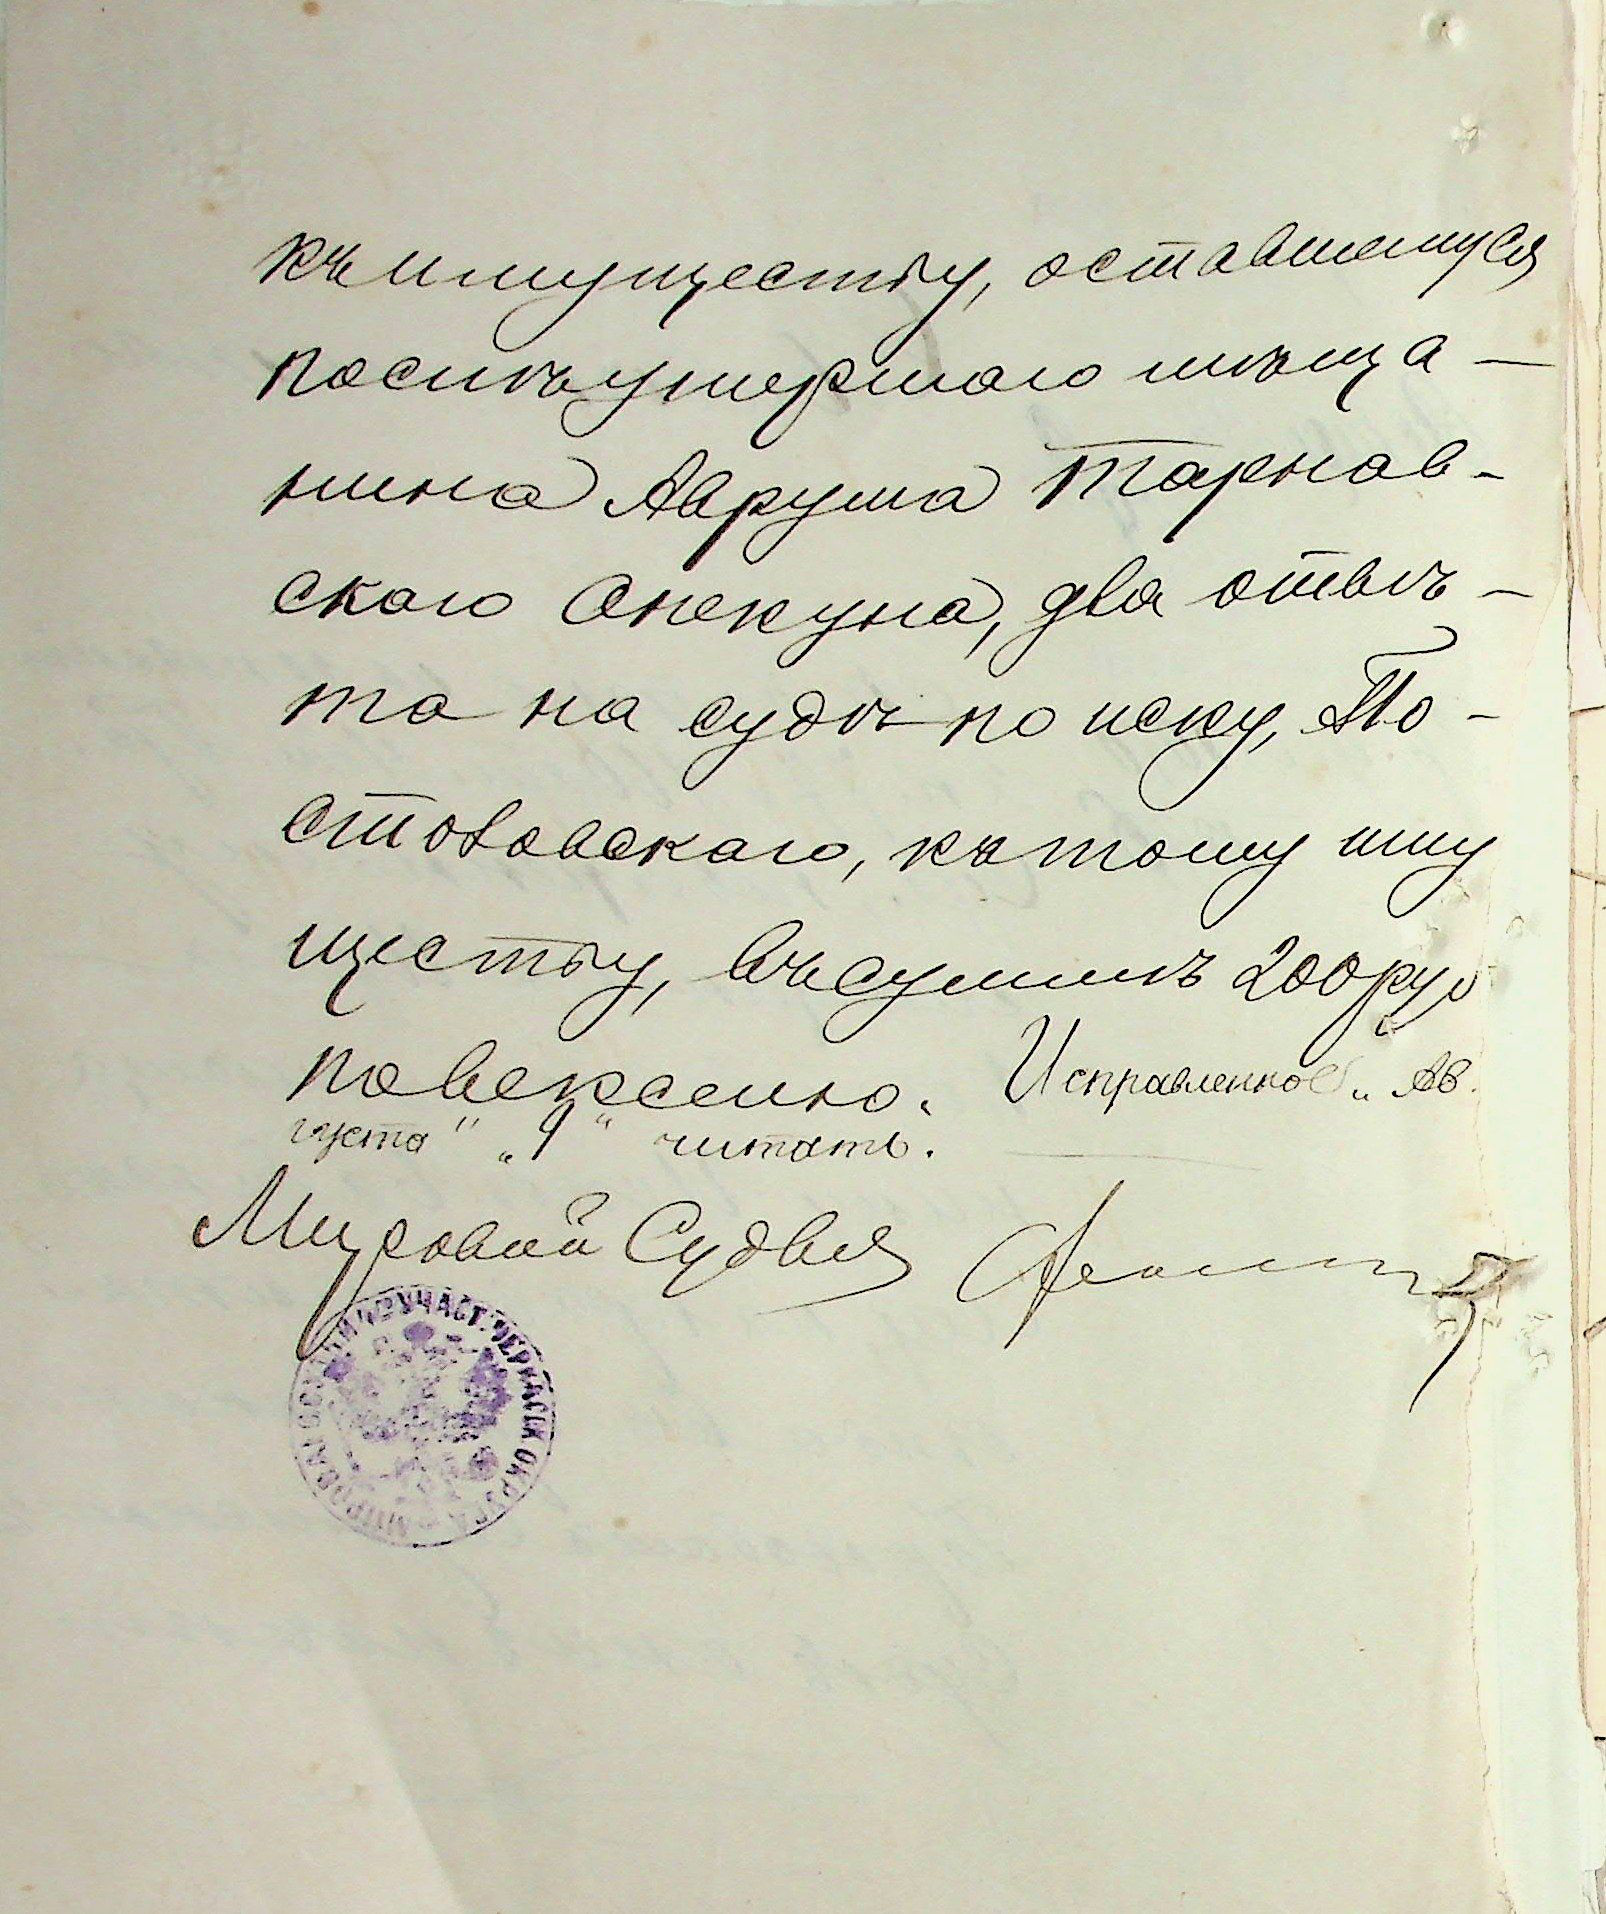 къ имуществу, оставшемуся
послѣ умершаго мѣща-
нина Авруша Тарнав-
скаго Опекуна, для отвѣ-
та на судѣ по иску,
къ тому иму
ществу, въ суммѣ 200 руб
по векселю. Исправленное „Ав
густа" „9" читать.
Мировой Судья
МИРОВАГО СУДЬИ УЧАСТ. ЧЕРКАСК. ОКРУГА